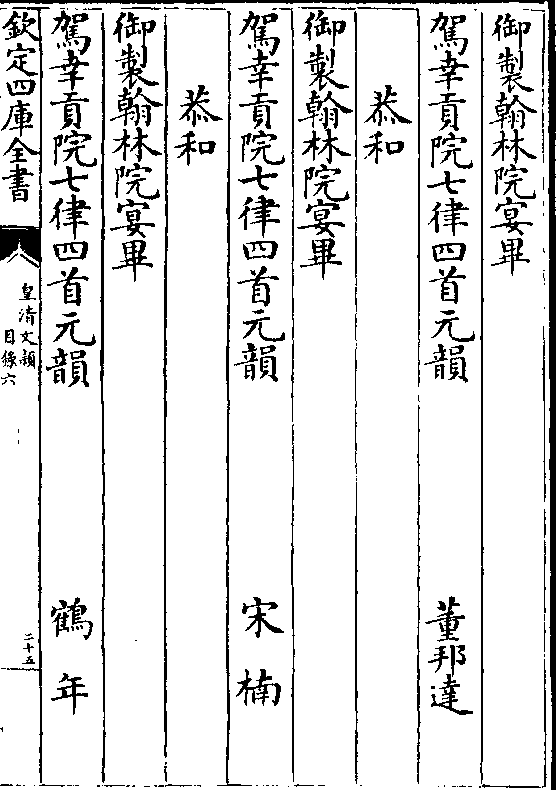 御製翰林院宴畢
駕幸貢院七律四首元韻 董邦達
恭和
御製翰林院宴畢
駕幸貢院七律四首元韻 宋楠
恭和
御製翰林院宴畢
駕幸貢院七律四首元韻 鶴年
欽定四庫全書
皇清文穎
目錄六
二十五